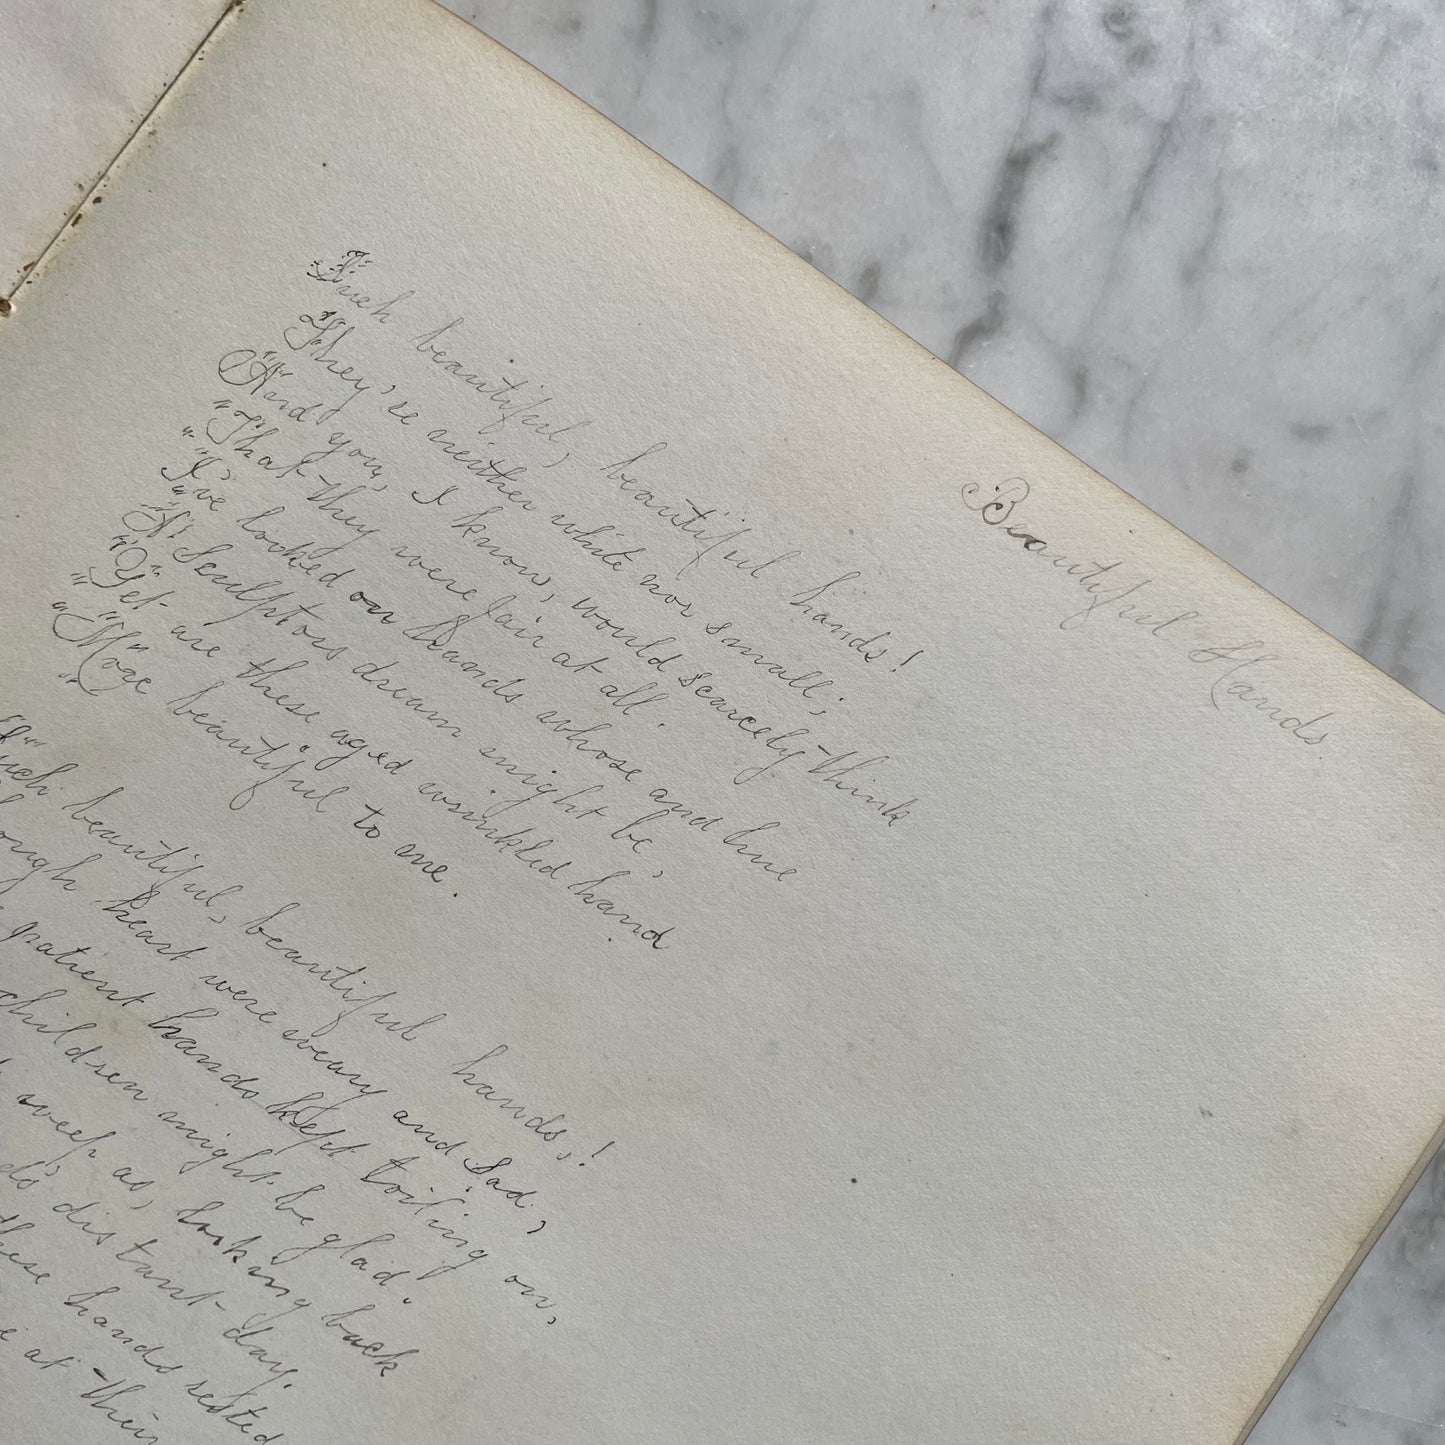 Beautiful Hands
Such beautiful, beautiful hands!
They're neither white nor small;
And you, I know, would scarcely think
That they were fair at all.
I've looked on hands whose and hue
A Sculptors dream might be,
Yet are these aged wrinkled hand
More beautiful to me.
Such beautiful, beautiful hands,!
heart were weary and Sad,
patient hands kept toiling on,
children might be glad.
weep as, looking back
distant day.
these hands rested
at their